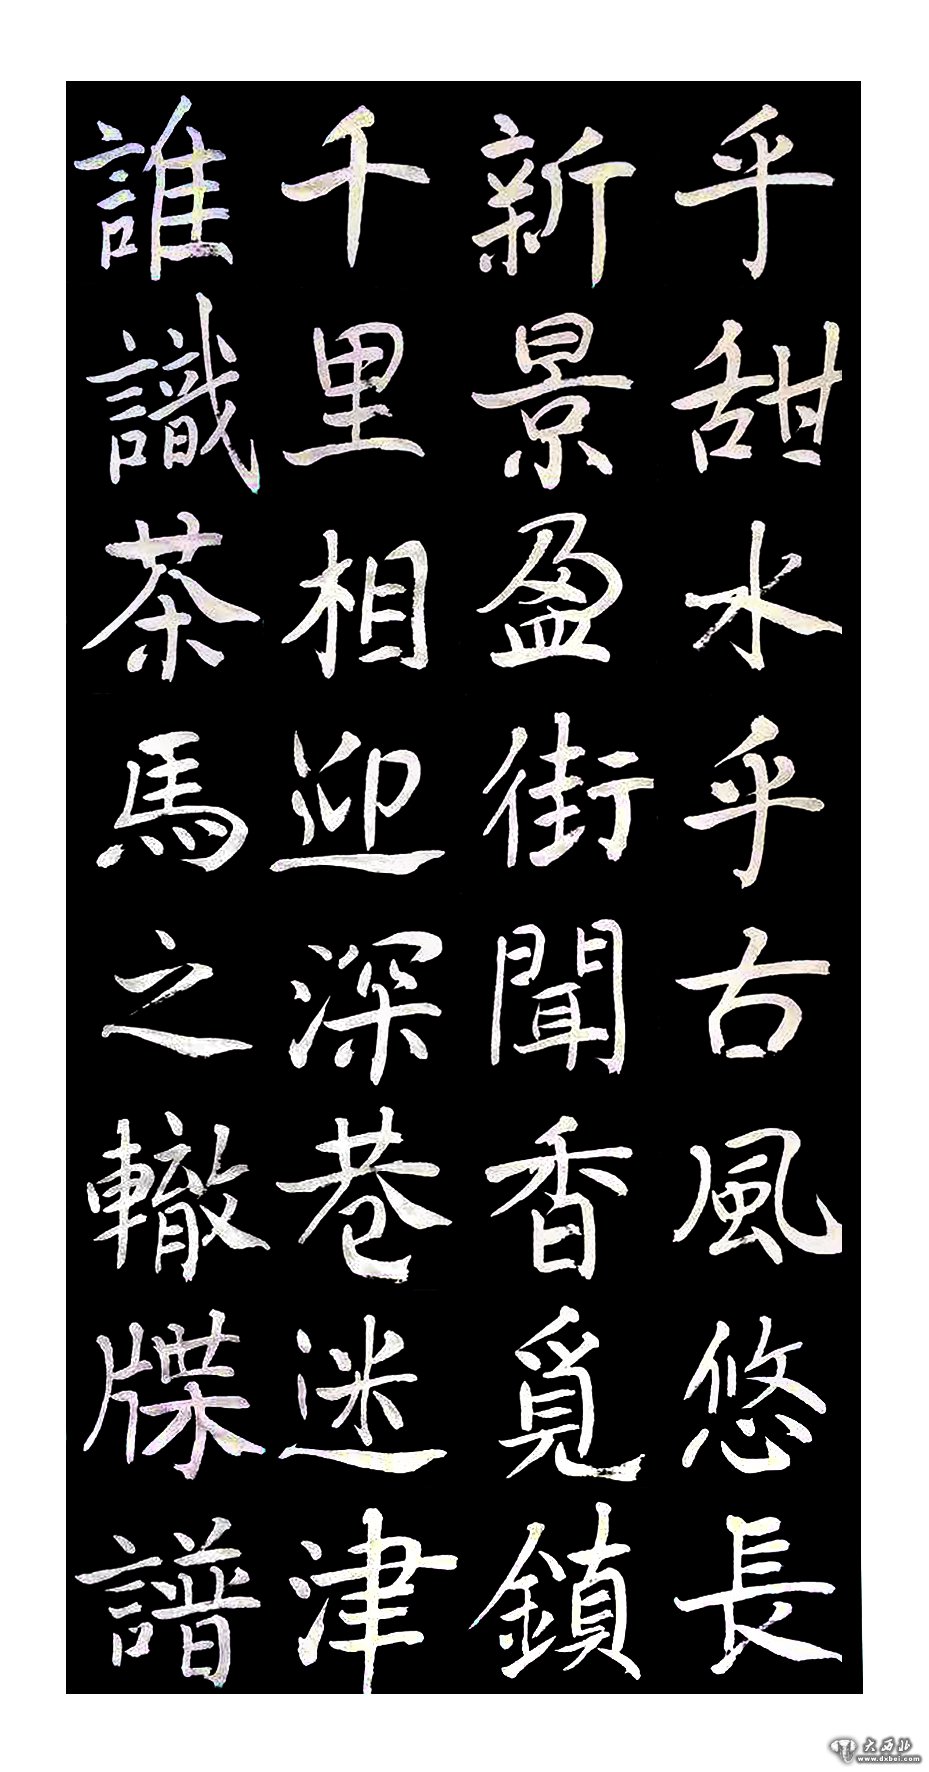 乎甜水乎古風悠長
新景盈街聞香覓鎮
千里相迎深巷迷津
誰識茶馬之轍牒譜
大西北
www.dxbei.com